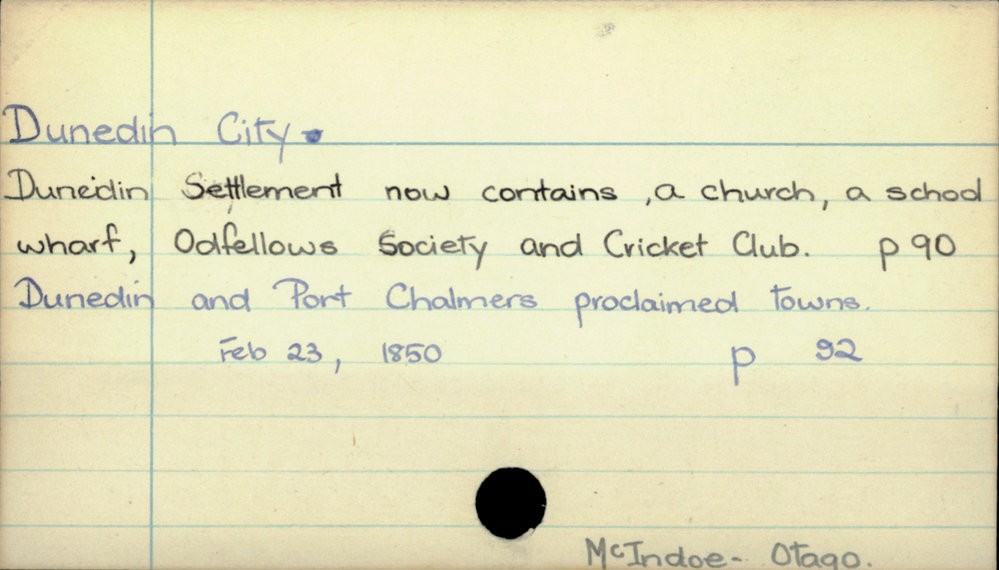 Dunedin City.
Dunedin Settlement now contains, a church, a school
wharf, Odfellows Society and Cricket Club. p 90
Dunedin and Port Chalmers proclaimed towns.
Feb 23, 1850 p 92
McIndoe - Otago.